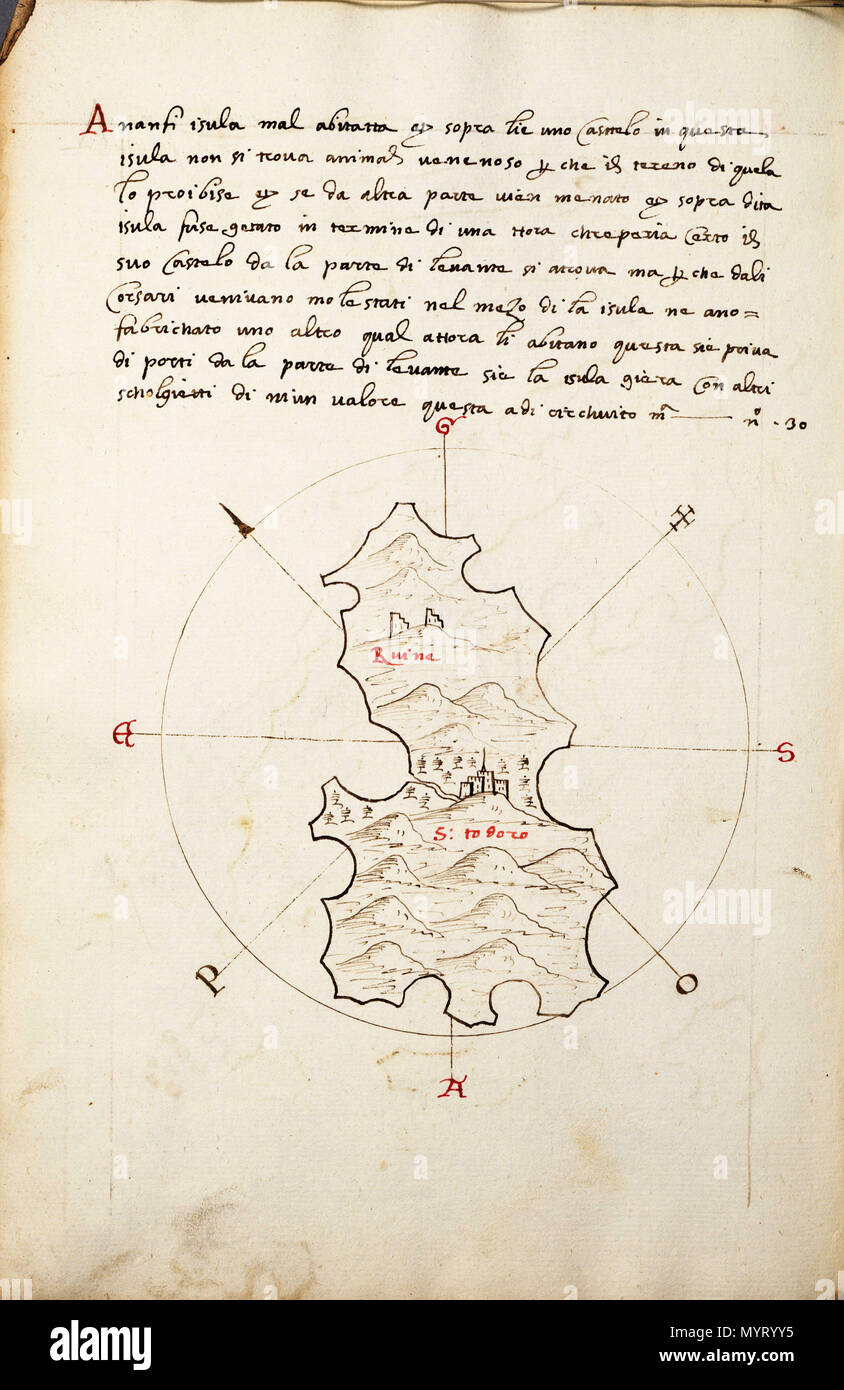 Ananfi isula mal abitatta & sopra lie uno Castelo in questa
isula non si trova animal venenoso p che il tereno di quela
lo proibise & se da altra parte vien menato & sopra dita
isula fuse getato in termine di una ttora chreperia Certo il
suo Castelo da la parte di levante si atrova ma p che dali
Corsari venivano molestati nel mezo di la isula ne ano=
fabrichato uno altro qual attora li abitano questa sie priva
di porti da la parte di levante sie la isula giera Con altri
scholgietti di niun valore questa a di circhuito m̃ — nº · 30
G
Ruina
S
S: todoro
P
O
A
alamy
alamy
alamy
alamy stock photo
MYRYY5
www.alamy.com